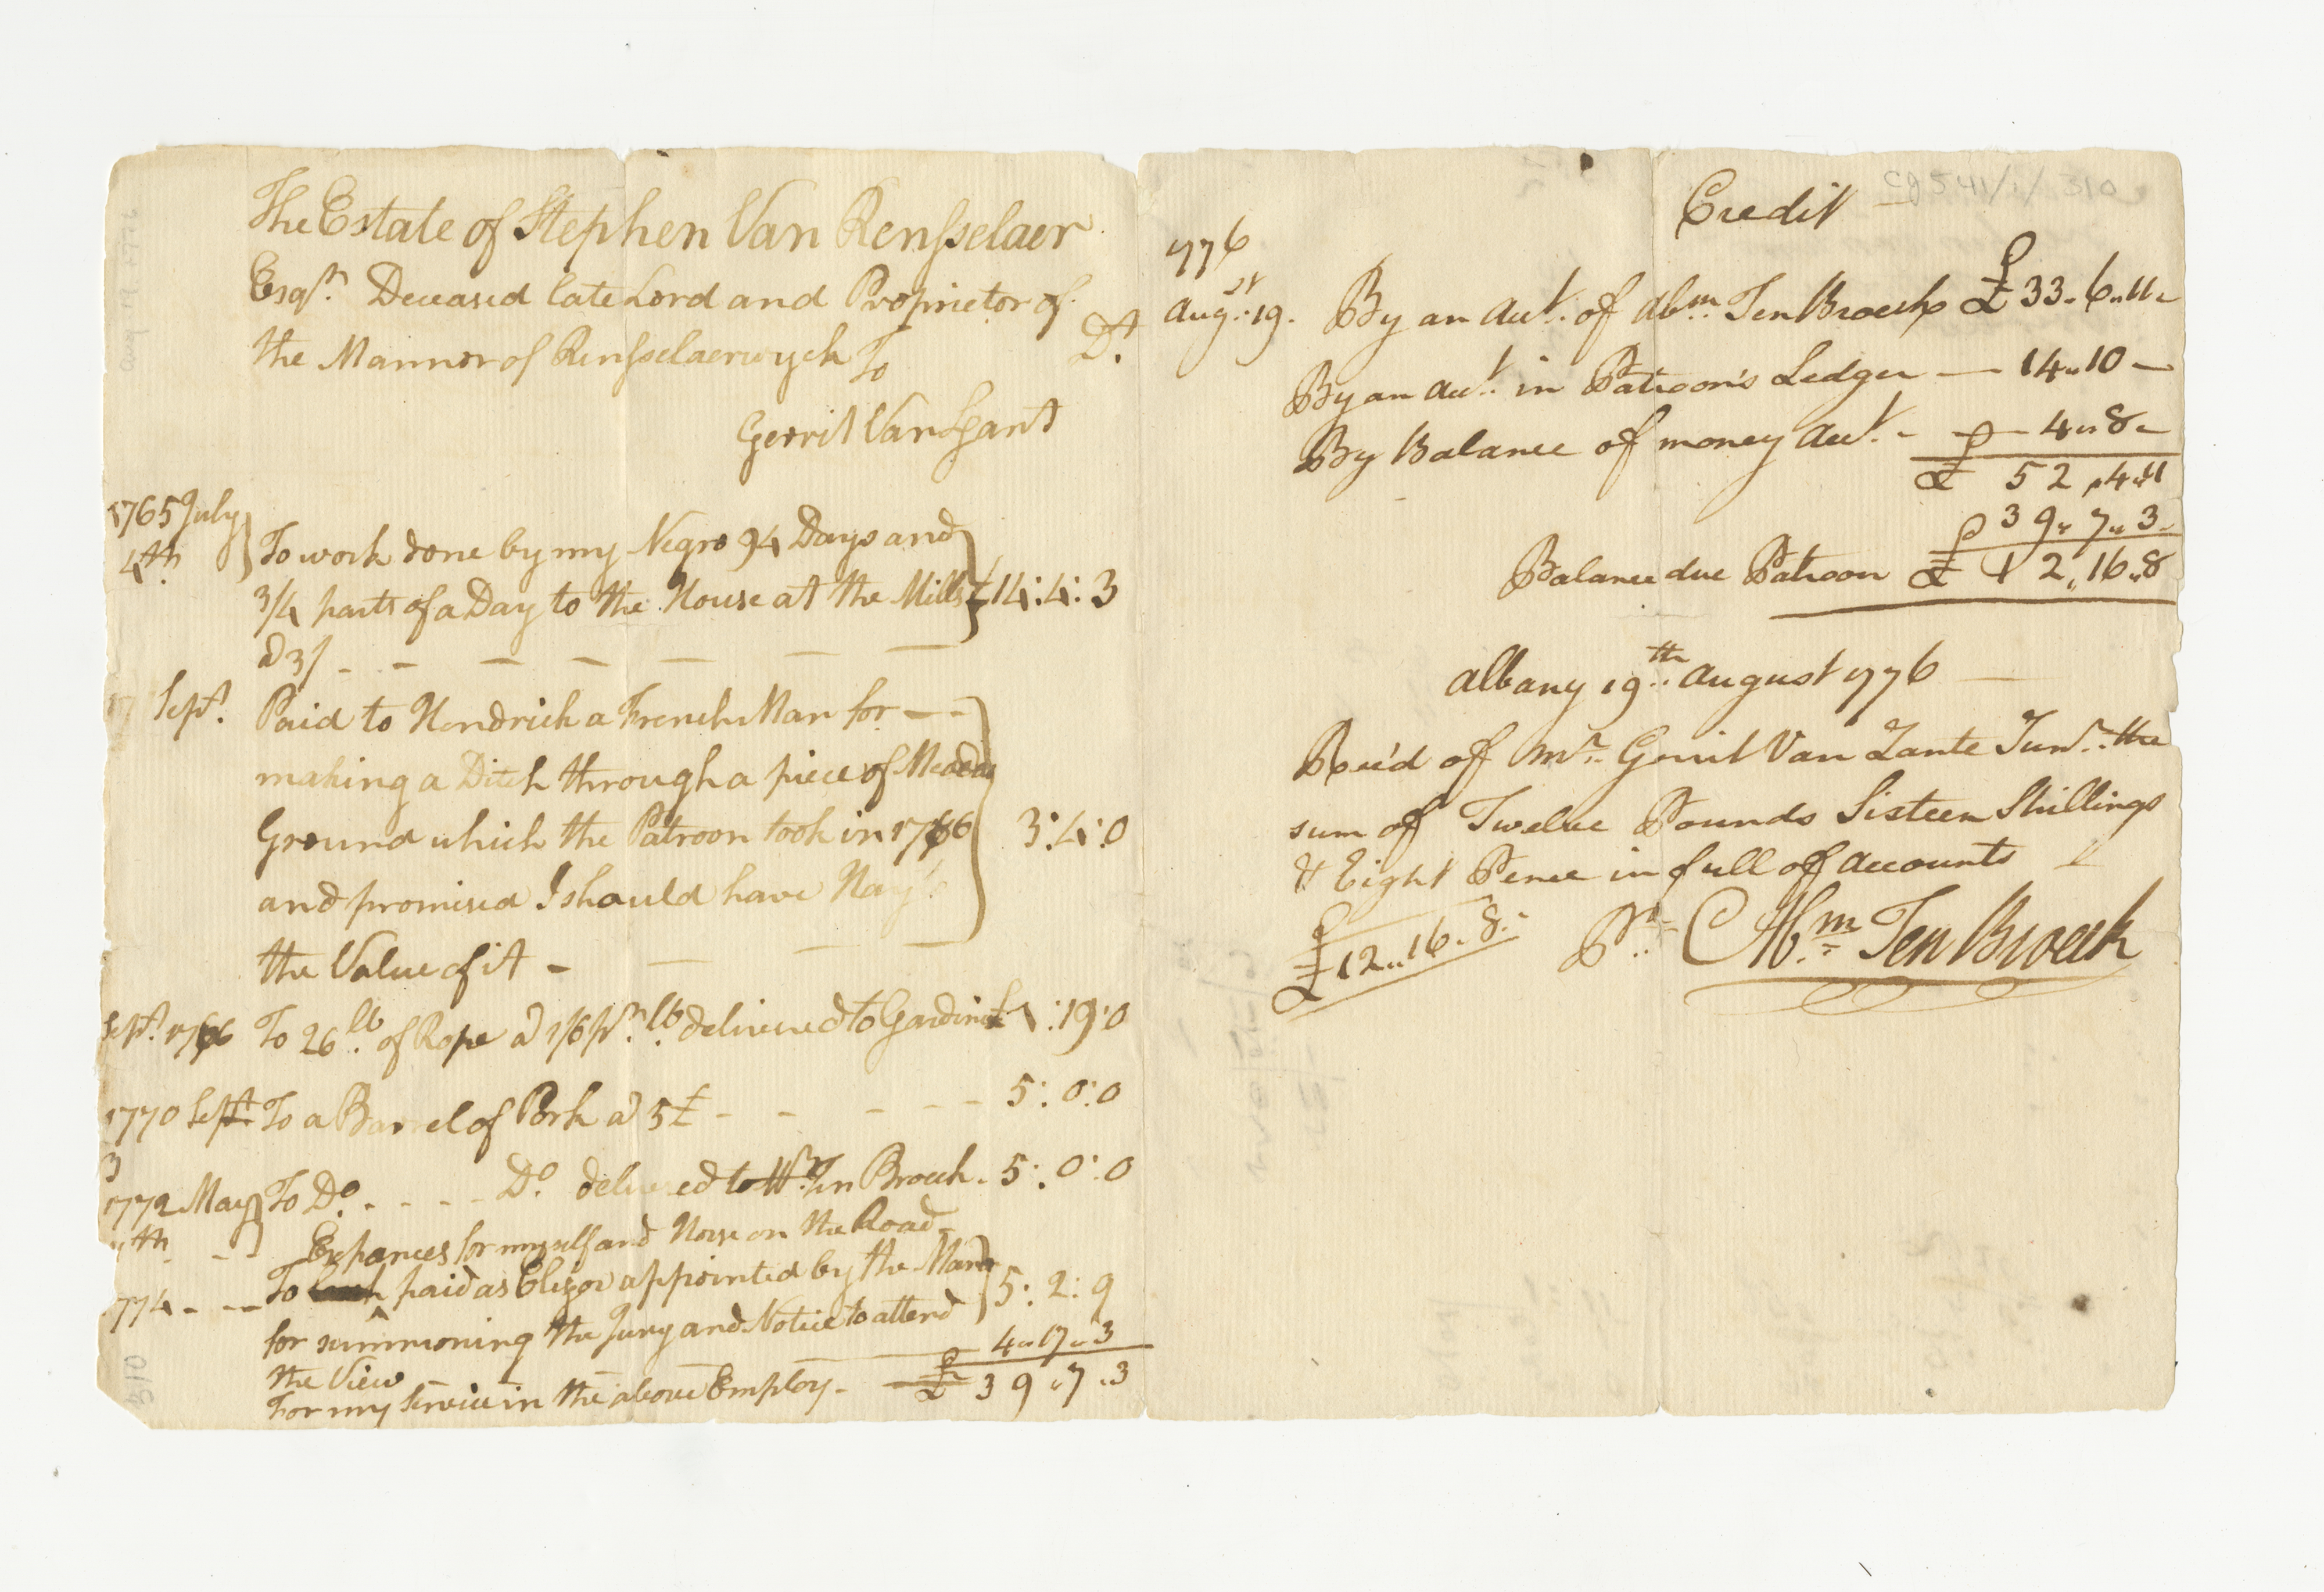 The Estate of Stephen Van Rensselaer
Esqr. Deceased late Lord and Proprietor of
the Mannor of Rensselaerwyck To Dt.
Gerrit Van Sant
1765 July
4th. To work done by my Negro 94 Days and
3/4 parts of a Day to the House at the Mills £14:4:3
a 3/ - - - - - - -
Sept. Paid to Hendrick a French Man for - -
making a Ditch through a piece of Meadow
Ground which the Patroon took in 1766 3:4:0
and promised I should have
the Value of it - - - -
Sept. 1766 To 26 lb. of Rope a 1/6 pr. lb. delivered to Gardinier 1:19:0
1770 Sept. To a Barrel of Pork a 5£ - - - - - 5:0:0
3
1772 May To Do. - - - - Do. delivered to Ten Broeck - 5:0:0
th - -
Expances for myself and Horse on the Road
1774 - - - To Cash paid as Elizor appointed by the
for summoning the Jury and Notice to attend 5:2:9
the View 4"17"3
For my Service in the above Employ - £39"7"3
Credit
cg541/1/310
1776
Augst. 19. By an Acct. of Abm. Ten Broeck £33"6"11
By an Acct. in Patroon's Ledger — 14"10 —
By Balance of money Acct. - — 4"8 -
£ 52"4"11
39"7"3
Balance due Patroon £12"16"8
Albany 19th. August 1776 —
Rec'd of Mr. Gerrit Van Zante Junr. the
sum of Twelve Pounds Sixteen Shillings
& Eight Pence in full of Accounts
£12"16"8. Pr. Abm. Ten Broeck
310